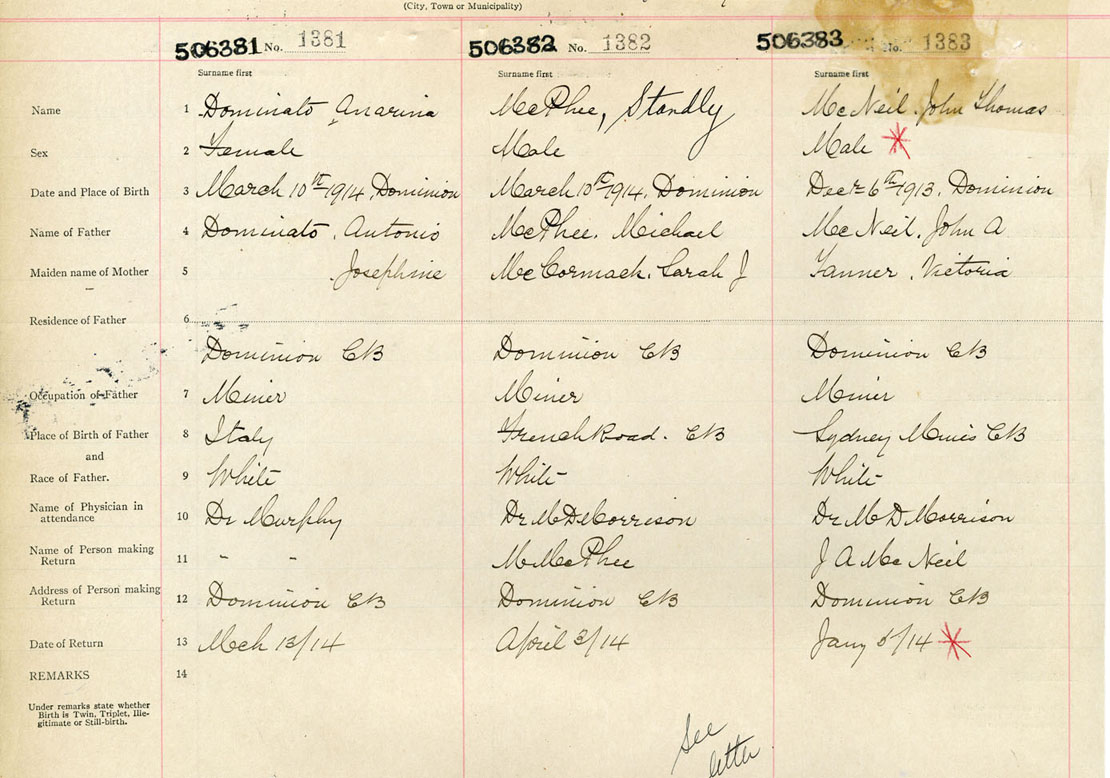 (City, Town or Municipality)
506381 No. 1381 506382 No. 1382 506383 No. 1383
Surname first Surname first Surname first
Name 1 Dominato Anarina McPhee, Standly McNeil. John Thomas
Sex 2 Female Male Male
Date and Place of Birth 3 March 10th 1914, Dominion March 10th 1914, Dominion Decr 6th 1913, Dominion
Name of Father 4 Dominato, Antonio McPhee. Michael McNeil. John A
Maiden name of Mother 5 Josephine McCormack. Sarah J Tanner. Victoria
Residence of Father 6
Dominion CB Dominion CB Dominion CB
Occupation of Father 7 Miner Miner Miner
Place of Birth of Father 8 Italy French Road. CB Sydney Mines CB
and
Race of Father. 9 White White White
Name of Physician in
attendance 10 Dr Murphy Dr M D Morrison Dr M D Morrison
Name of Person making
Return 11 " " M McPhee J A McNeil
Address of Person making
Return 12 Dominion CB Dominion CB Dominion CB
Date of Return 13 Mch 13/14 April 3/14 Jany 5/14
REMARKS 14
Under remarks state whether
Birth is Twin, Triplet, Ille-
gitimate or Still-birth.
See
letter